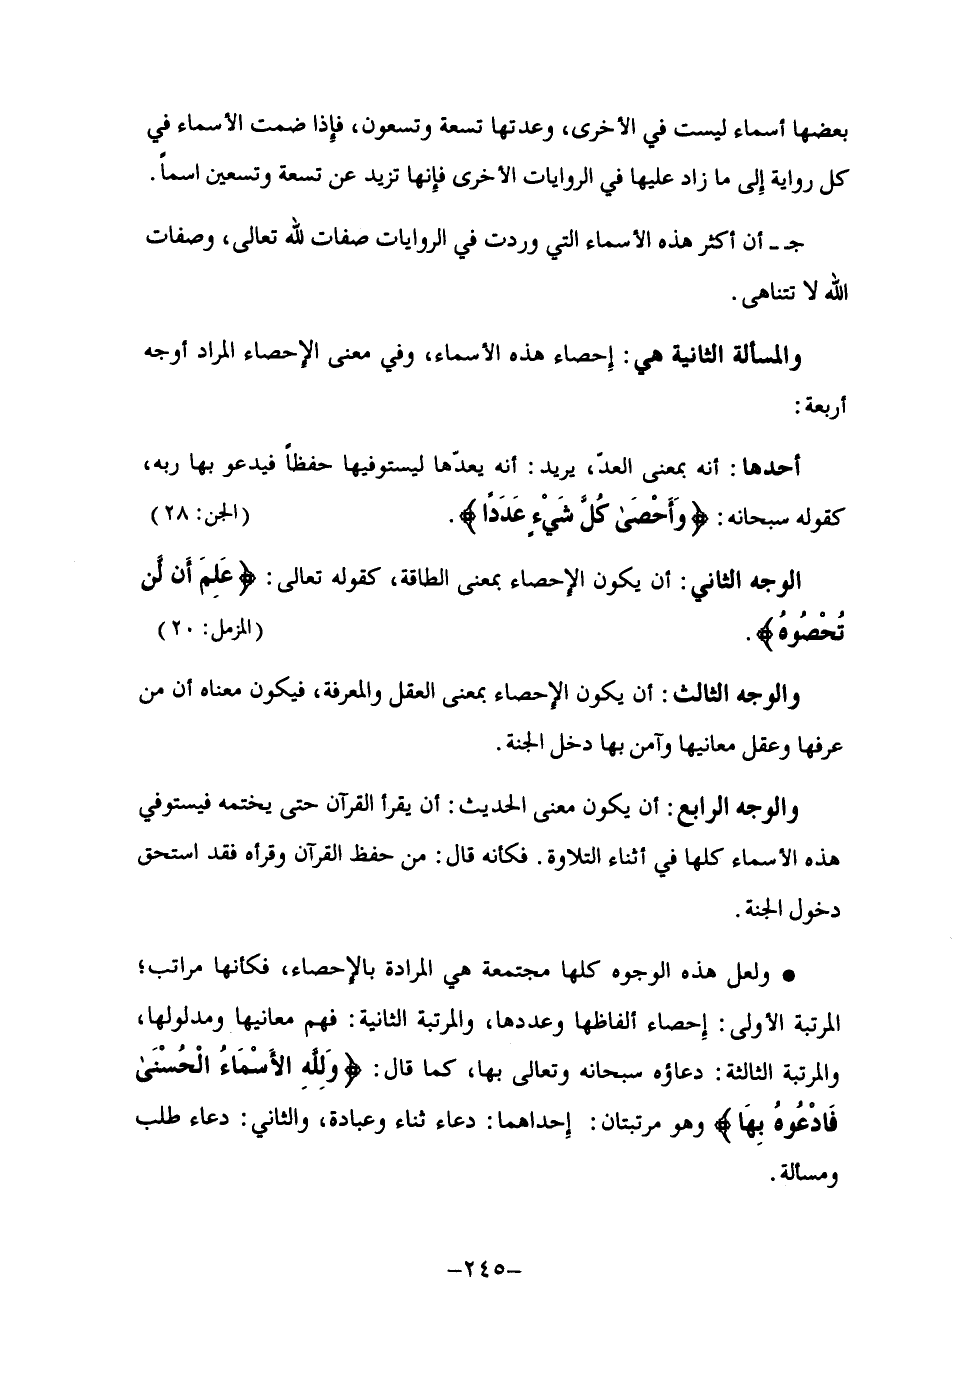 بعضها أسماء ليست في الأخرى، وعدتها تسعة وتسعون، فإذا ضمت الأسماء في
كل رواية إلى ما زاد عليها في الروايات الأخرى فإنها تزيد عن تسعة وتسعين اسماً.
جـ ـ أن أكثر هذه الأسماء التي وردت في الروايات صفات لله تعالى، وصفات
الله لا تتناهى.
والمسألة الثانية هي: إحصاء هذه الأسماء، وفي معنى الإحصاء المراد أوجه
أربعة:
أحدها: أنه بمعنى العدّ، يريد: أنه يعدّها ليستوفيها حفظاً فيدعو بها ربه،
كقوله سبحانه: ﴿وَأَحْصَىٰ كُلَّ شَيْءٍ عَدَدًا﴾. (الجن: ٢٨)
الوجه الثاني: أن يكون الإحصاء بمعنى الطاقة، كقوله تعالى: ﴿عَلِمَ أَن لَّن
تُحْصُوهُ﴾. (المزمل: ٢٠)
والوجه الثالث: أن يكون الإحصاء بمعنى العقل والمعرفة، فيكون معناه أن من
عرفها وعقل معانيها وآمن بها دخل الجنة.
والوجه الرابع: أن يكون معنى الحديث: أن يقرأ القرآن حتى يختمه فيستوفي
هذه الأسماء كلها في أثناء التلاوة. فكأنه قال: من حفظ القرآن وقرأه فقد استحق
دخول الجنة.
● ولعل هذه الوجوه كلها مجتمعة هي المرادة بالإحصاء، فكأنها مراتب؛
المرتبة الأولى: إحصاء ألفاظها وعددها، والمرتبة الثانية: فهم معانيها ومدلولها،
والمرتبة الثالثة: دعاؤه سبحانه وتعالى بها، كما قال: ﴿وَلِلَّهِ الأَسْمَاءُ الْحُسْنَىٰ
فَادْعُوهُ بِهَا﴾ وهو مرتبتان: إحداهما: دعاء ثناء وعبادة، والثاني: دعاء طلب
ومسألة.
–٢٤٥–